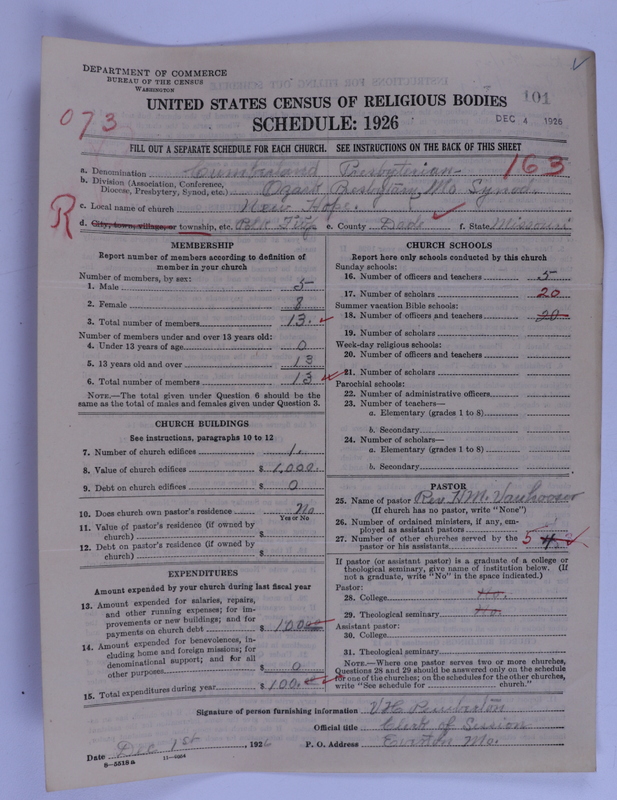 DEPARTMENT OF COMMERCE
BUREAU OF THE CENSUS
WASHINGTON
101
UNITED STATES CENSUS OF RELIGIOUS BODIES
SCHEDULE: 1926
DEC 4 1926
073
FILL OUT A SEPARATE SCHEDULE FOR EACH CHURCH. SEE INSTRUCTIONS ON THE BACK OF THIS SHEET
163
a. Denomination Cumberland Presbyterian
b. Division (Association, Conference, Diocese, Presbytery, Synod, etc.) Ozark Presbytery, Mo Synod.
c. Local name of church New Hope.
R
d. City, town, village, or township, etc. Polk Twp e. County Dade f. State Missouri
MEMBERSHIP
Report number of members according to definition of
member in your church
Number of members, by sex:
1. Male 5
2. Female 8
3. Total number of members 13.
Number of members under and over 13 years old:
4. Under 13 years of age 0
5. 13 years old and over 13
6. Total number of members 13
NOTE.—The total given under Question 6 should be the
same as the total of males and females given under Question 3.
CHURCH BUILDINGS
See instructions, paragraphs 10 to 12
7. Number of church edifices 1.
8. Value of church edifices $ 1,000.
9. Debt on church edifices $ 0
10. Does church own pastor's residence No
Yes or No
11. Value of pastor's residence (if owned by
church) $
12. Debt on pastor's residence (if owned by
church) $
EXPENDITURES
Amount expended by your church during last fiscal year
13. Amount expended for salaries, repairs,
and other running expenses; for im-
provements or new buildings; and for
payments on church debt $ 100
14. Amount expended for benevolences, in-
cluding home and foreign missions; for
denominational support; and for all
other purposes $ 0
15. Total expenditures during year $ 100.
CHURCH SCHOOLS
Report here only schools conducted by this church
Sunday schools:
16. Number of officers and teachers 5
17. Number of scholars 20
Summer vacation Bible schools:
18. Number of officers and teachers 20
19. Number of scholars
Week-day religious schools:
20. Number of officers and teachers
21. Number of scholars
Parochial schools:
22. Number of administrative officers
23. Number of teachers—
a. Elementary (grades 1 to 8)
b. Secondary
24. Number of scholars—
a. Elementary (grades 1 to 8)
b. Secondary
PASTOR
25. Name of pastor Rev. H.M. Vanhooser
(If church has no pastor, write "None")
26. Number of ordained ministers, if any, em-
ployed as assistant pastors
27. Number of other churches served by the
pastor or his assistants 5
If pastor (or assistant pastor) is a graduate of a college or
theological seminary, give name of institution below. (If
not a graduate, write "No" in the space indicated.)
Pastor:
28. College No.
29. Theological seminary No.
Assistant pastor:
30. College
31. Theological seminary
NOTE.—Where one pastor serves two or more churches,
Questions 28 and 29 should be answered only on the schedule
for one of the churches; on the schedules for the other churches,
write "See schedule for church."
Signature of person furnishing information V.H. Pemberton
Official title Clerk of Session
Date Dec 1st, 1926 P. O. Address Everton Mo.
8-5518a 11-9464